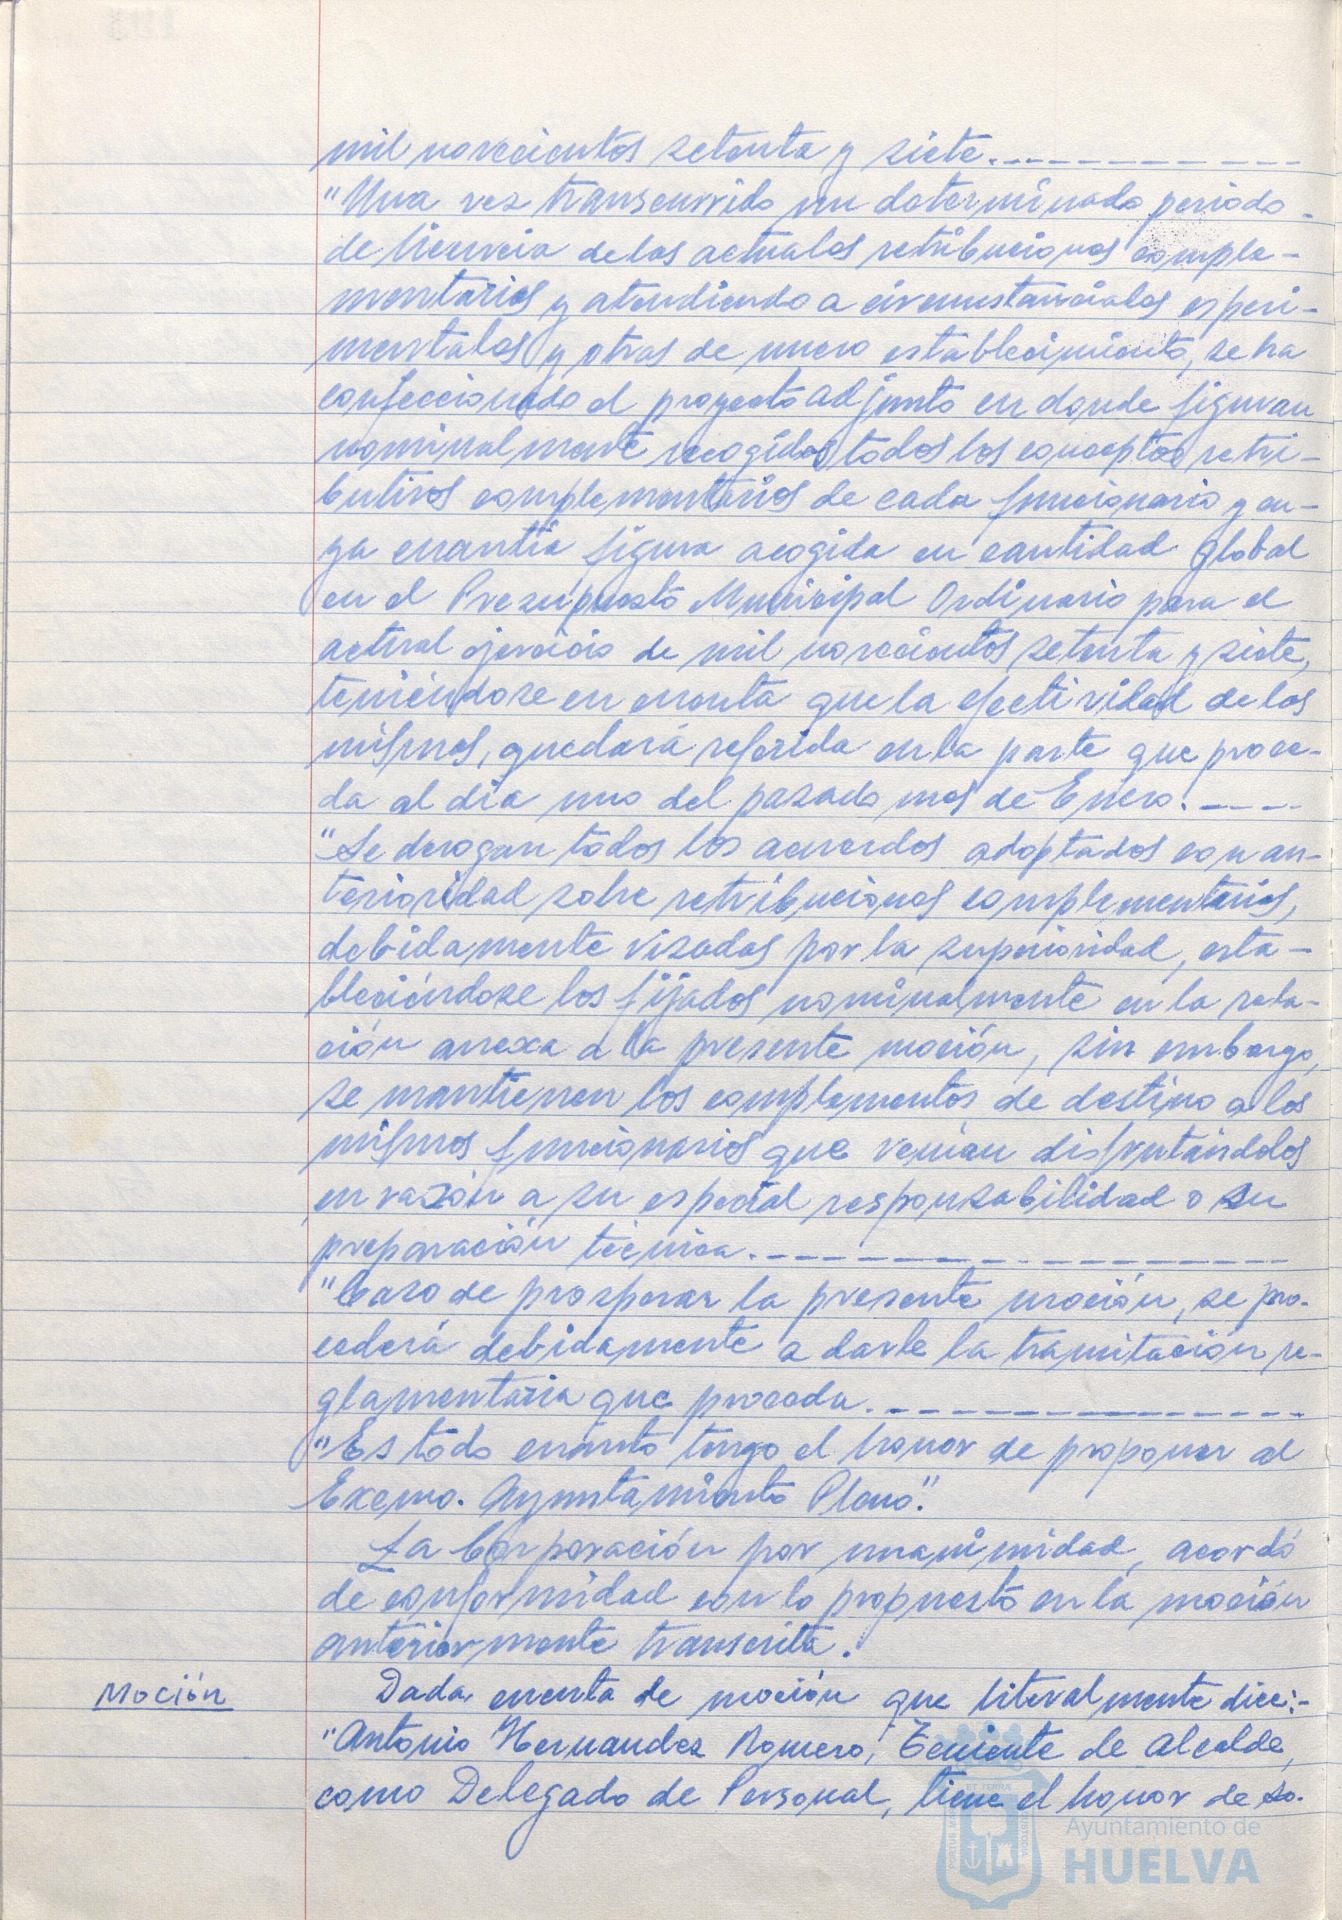 mil novecientos setenta y siete.
"Una vez transcurrido un determinado periodo
de licencia de las actuales retribuciones comple-
mentarias y atendiendo a circunstanciales experi-
mentales y otras de nuevo establecimiento, se ha
confeccionado el proyecto adjunto en donde figuran
nominalmente recogidos todos los conceptos retri-
butivos complementarios de cada funcionario y cu-
ya cuantía figura acogida en cantidad global
en el Presupuesto Municipal Ordinario para el
actual ejercicio de mil novecientos setenta y siete,
teniéndose en cuenta que la efectividad de los
mismos, quedará referida en la parte que proce-
da al día uno del pasado mes de Enero.
"Se derogan todos los acuerdos adoptados con an-
terioridad sobre retribuciones complementarias,
debidamente visadas por la superioridad, esta-
bleciéndose los fijados nominalmente en la rela-
ción anexa a la presente moción, sin embargo,
se mantienen los complementos de destino a los
mismos funcionarios que venían disfrutándolos
en razón a su especial responsabilidad o su
preparación técnica.
"Caso de prosperar la presente moción, se pro-
cederá debidamente a darle la tramitación re-
glamentaria que proceda.
"Es todo cuanto tengo el honor de proponer al
Excmo. Ayuntamiento Pleno".
La Corporación por unanimidad, acordó
de conformidad con lo propuesto en la moción
anteriormente transcrita.
Moción Dada cuenta de moción que literalmente dice:-
"Antonio Hernandez Romero, Teniente de Alcalde,
como Delegado de Personal, tiene el honor de so-
Ayuntamiento de
HUELVA